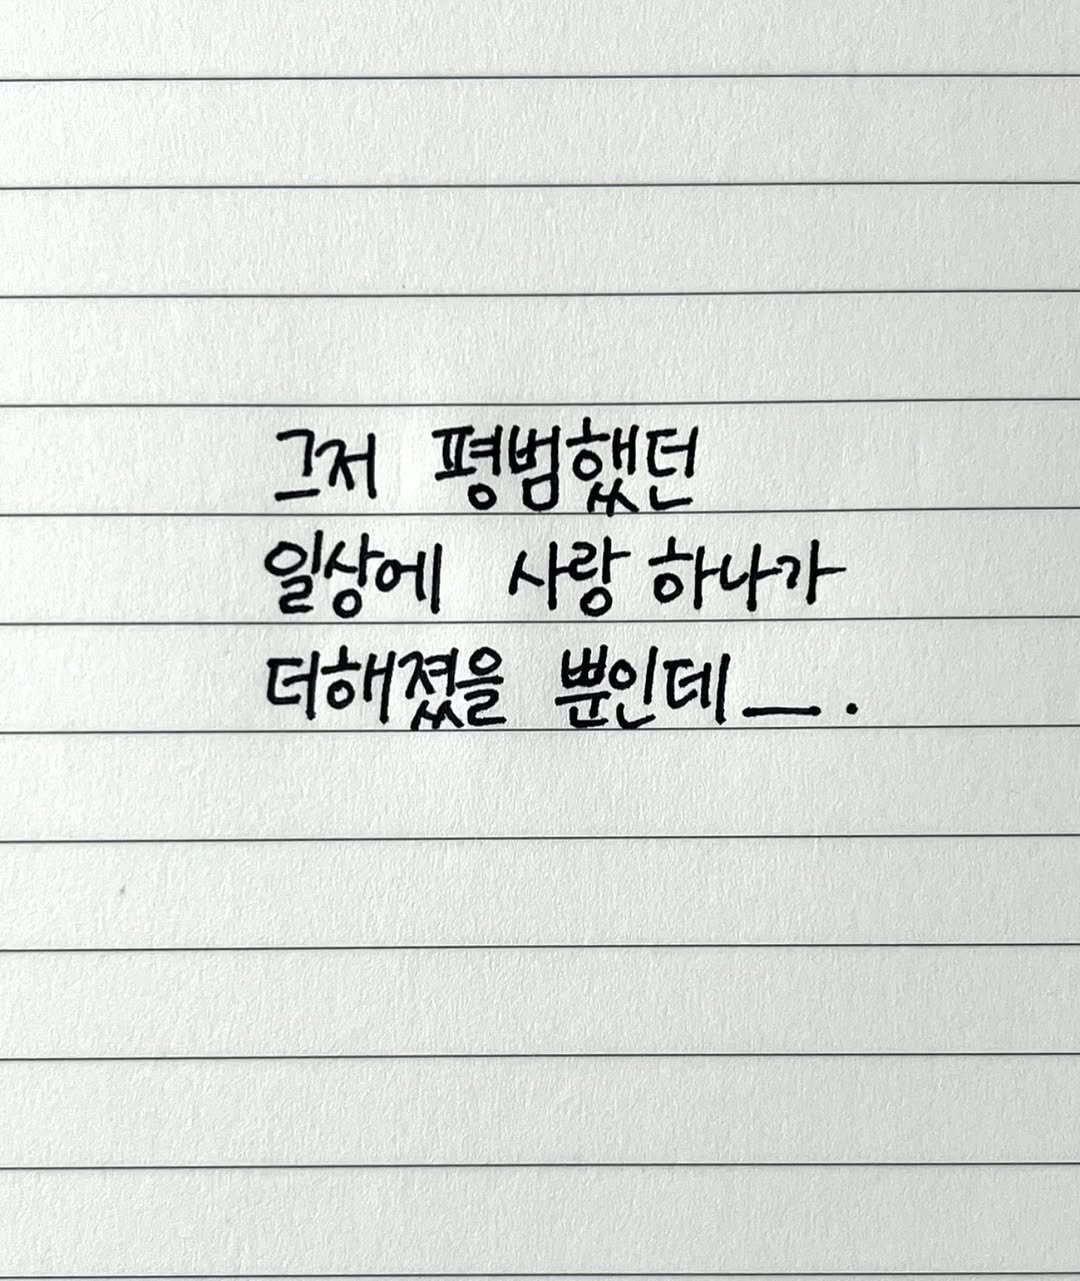 그저 평범했던
일상에 사랑 하나가
더해졌을 뿐인데__.